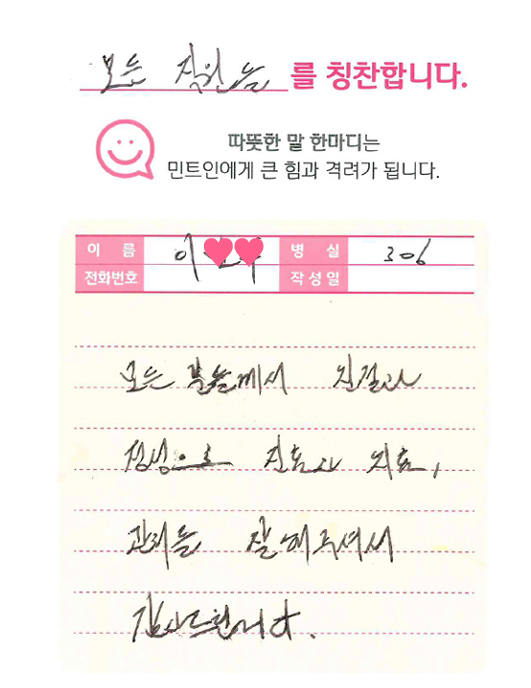 모든 직원들 를 칭찬합니다.
따뜻한 말 한마디는
민트인에게 큰 힘과 격려가 됩니다.
이 름 이 병 실 306
전화번호 작성일
모든 분들께서 친절과
정성으로 진료과 치료,
관리를 잘 해주셔서
감사드립니다.